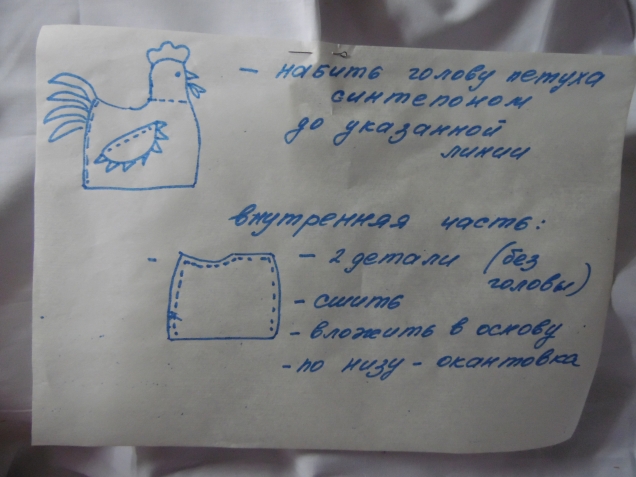 - набить голову петуха
синтепоном
до указанной
линии
внутренняя часть:
- 2 детали (без
головы)
- сшить
- вложить в основу
- по низу - окантовка